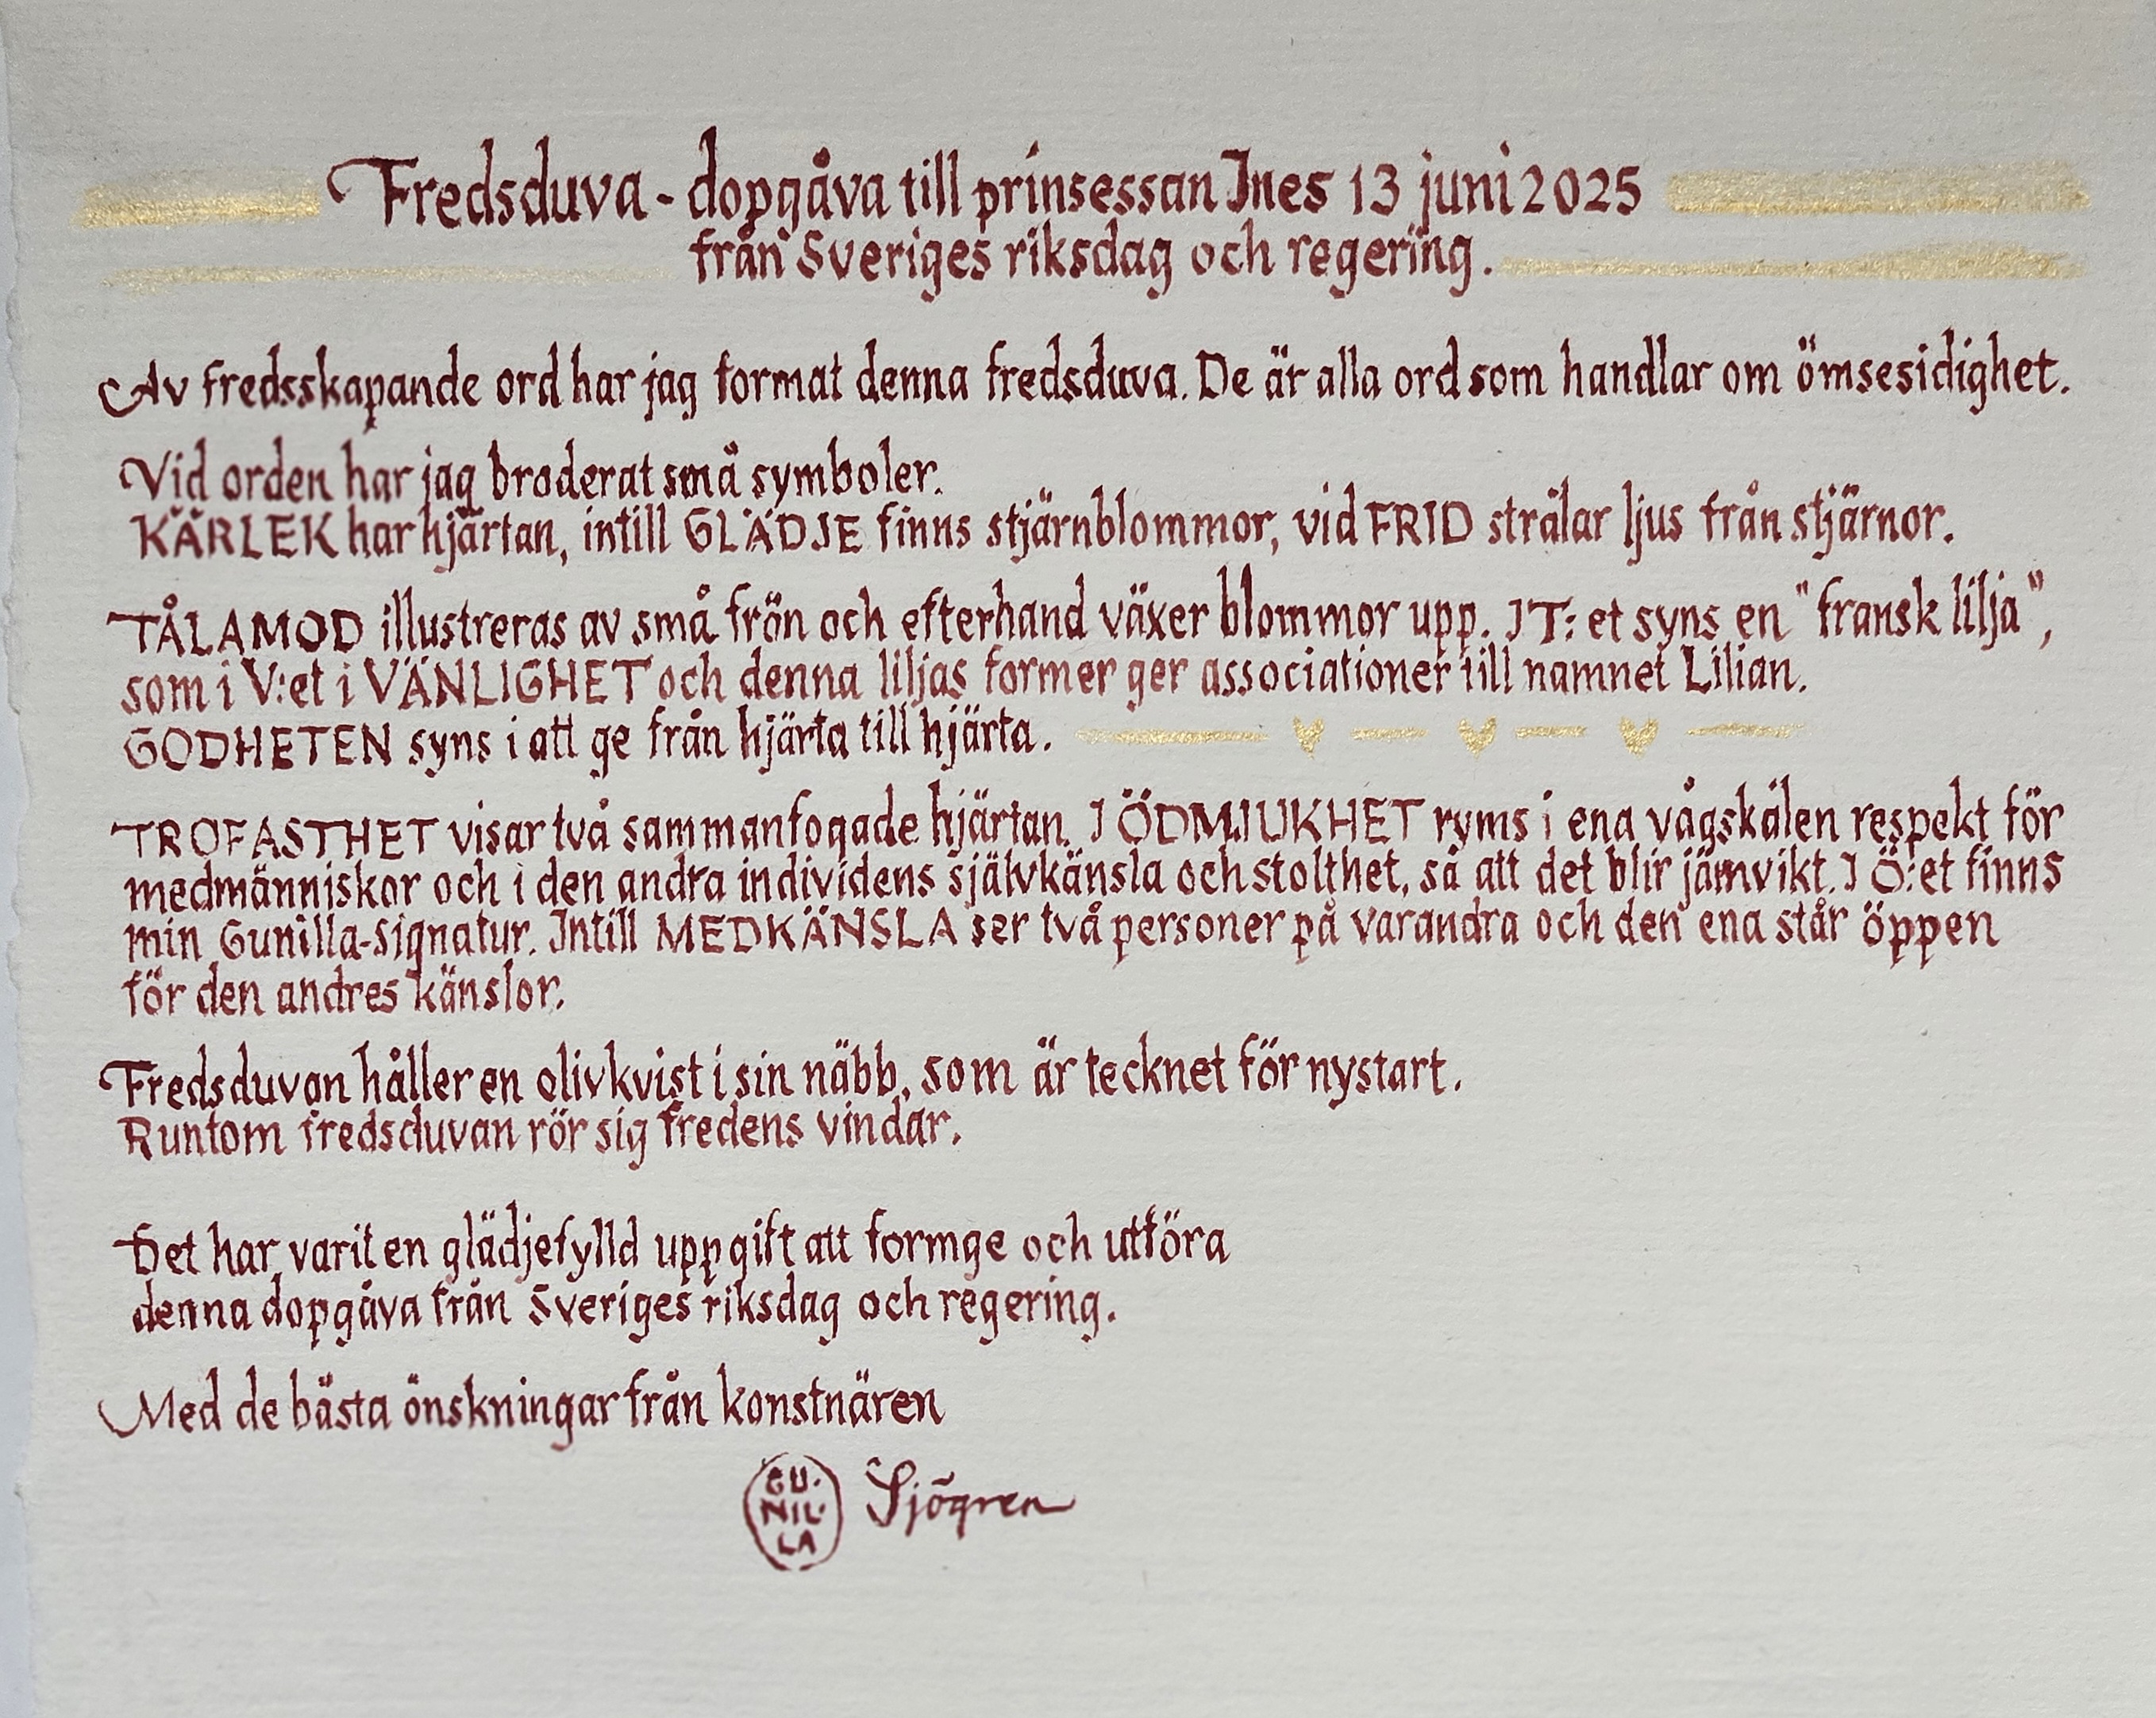 Fredsduva - dopgåva till prinsessan Ines 13 juni 2025
från Sveriges riksdag och regering.
Av fredsskapande ord har jag format denna fredsduva. De är alla ord som handlar om ömsesidighet.
Vid orden har jag broderat små symboler.
KÄRLEK har hjärtan, intill GLÄDJE finns stjärnblommor, vid FRID strålar ljus från stjärnor.
TÅLAMOD illustreras av små frön och efterhand växer blommor upp. I T:et syns en "fransk lilja",
som i V:et i VÄNLIGHET och denna liljas former ger associationer till namnet Lilian.
GODHETEN syns i att ge från hjärta till hjärta.
TROFASTHET visar två sammanfogade hjärtan. I ÖDMJUKHET ryms i ena vågskålen respekt för
medmänniskor och i den andra individens självkänsla och stolthet, så att det blir jämvikt. I Ö:et finns
min Gunilla-signatur. Intill MEDKÄNSLA ser två personer på varandra och den ena står öppen
för den andres känslor.
Fredsduvan håller en olivkvist i sin näbb, som är tecknet för nystart.
Runtom fredsduvan rör sig fredens vindar.
Det har varit en glädjefylld uppgift att formge och utföra
denna dopgåva från Sveriges riksdag och regering.
Med de bästa önskningar från konstnären
GU-
NIL-
LA Sjögren